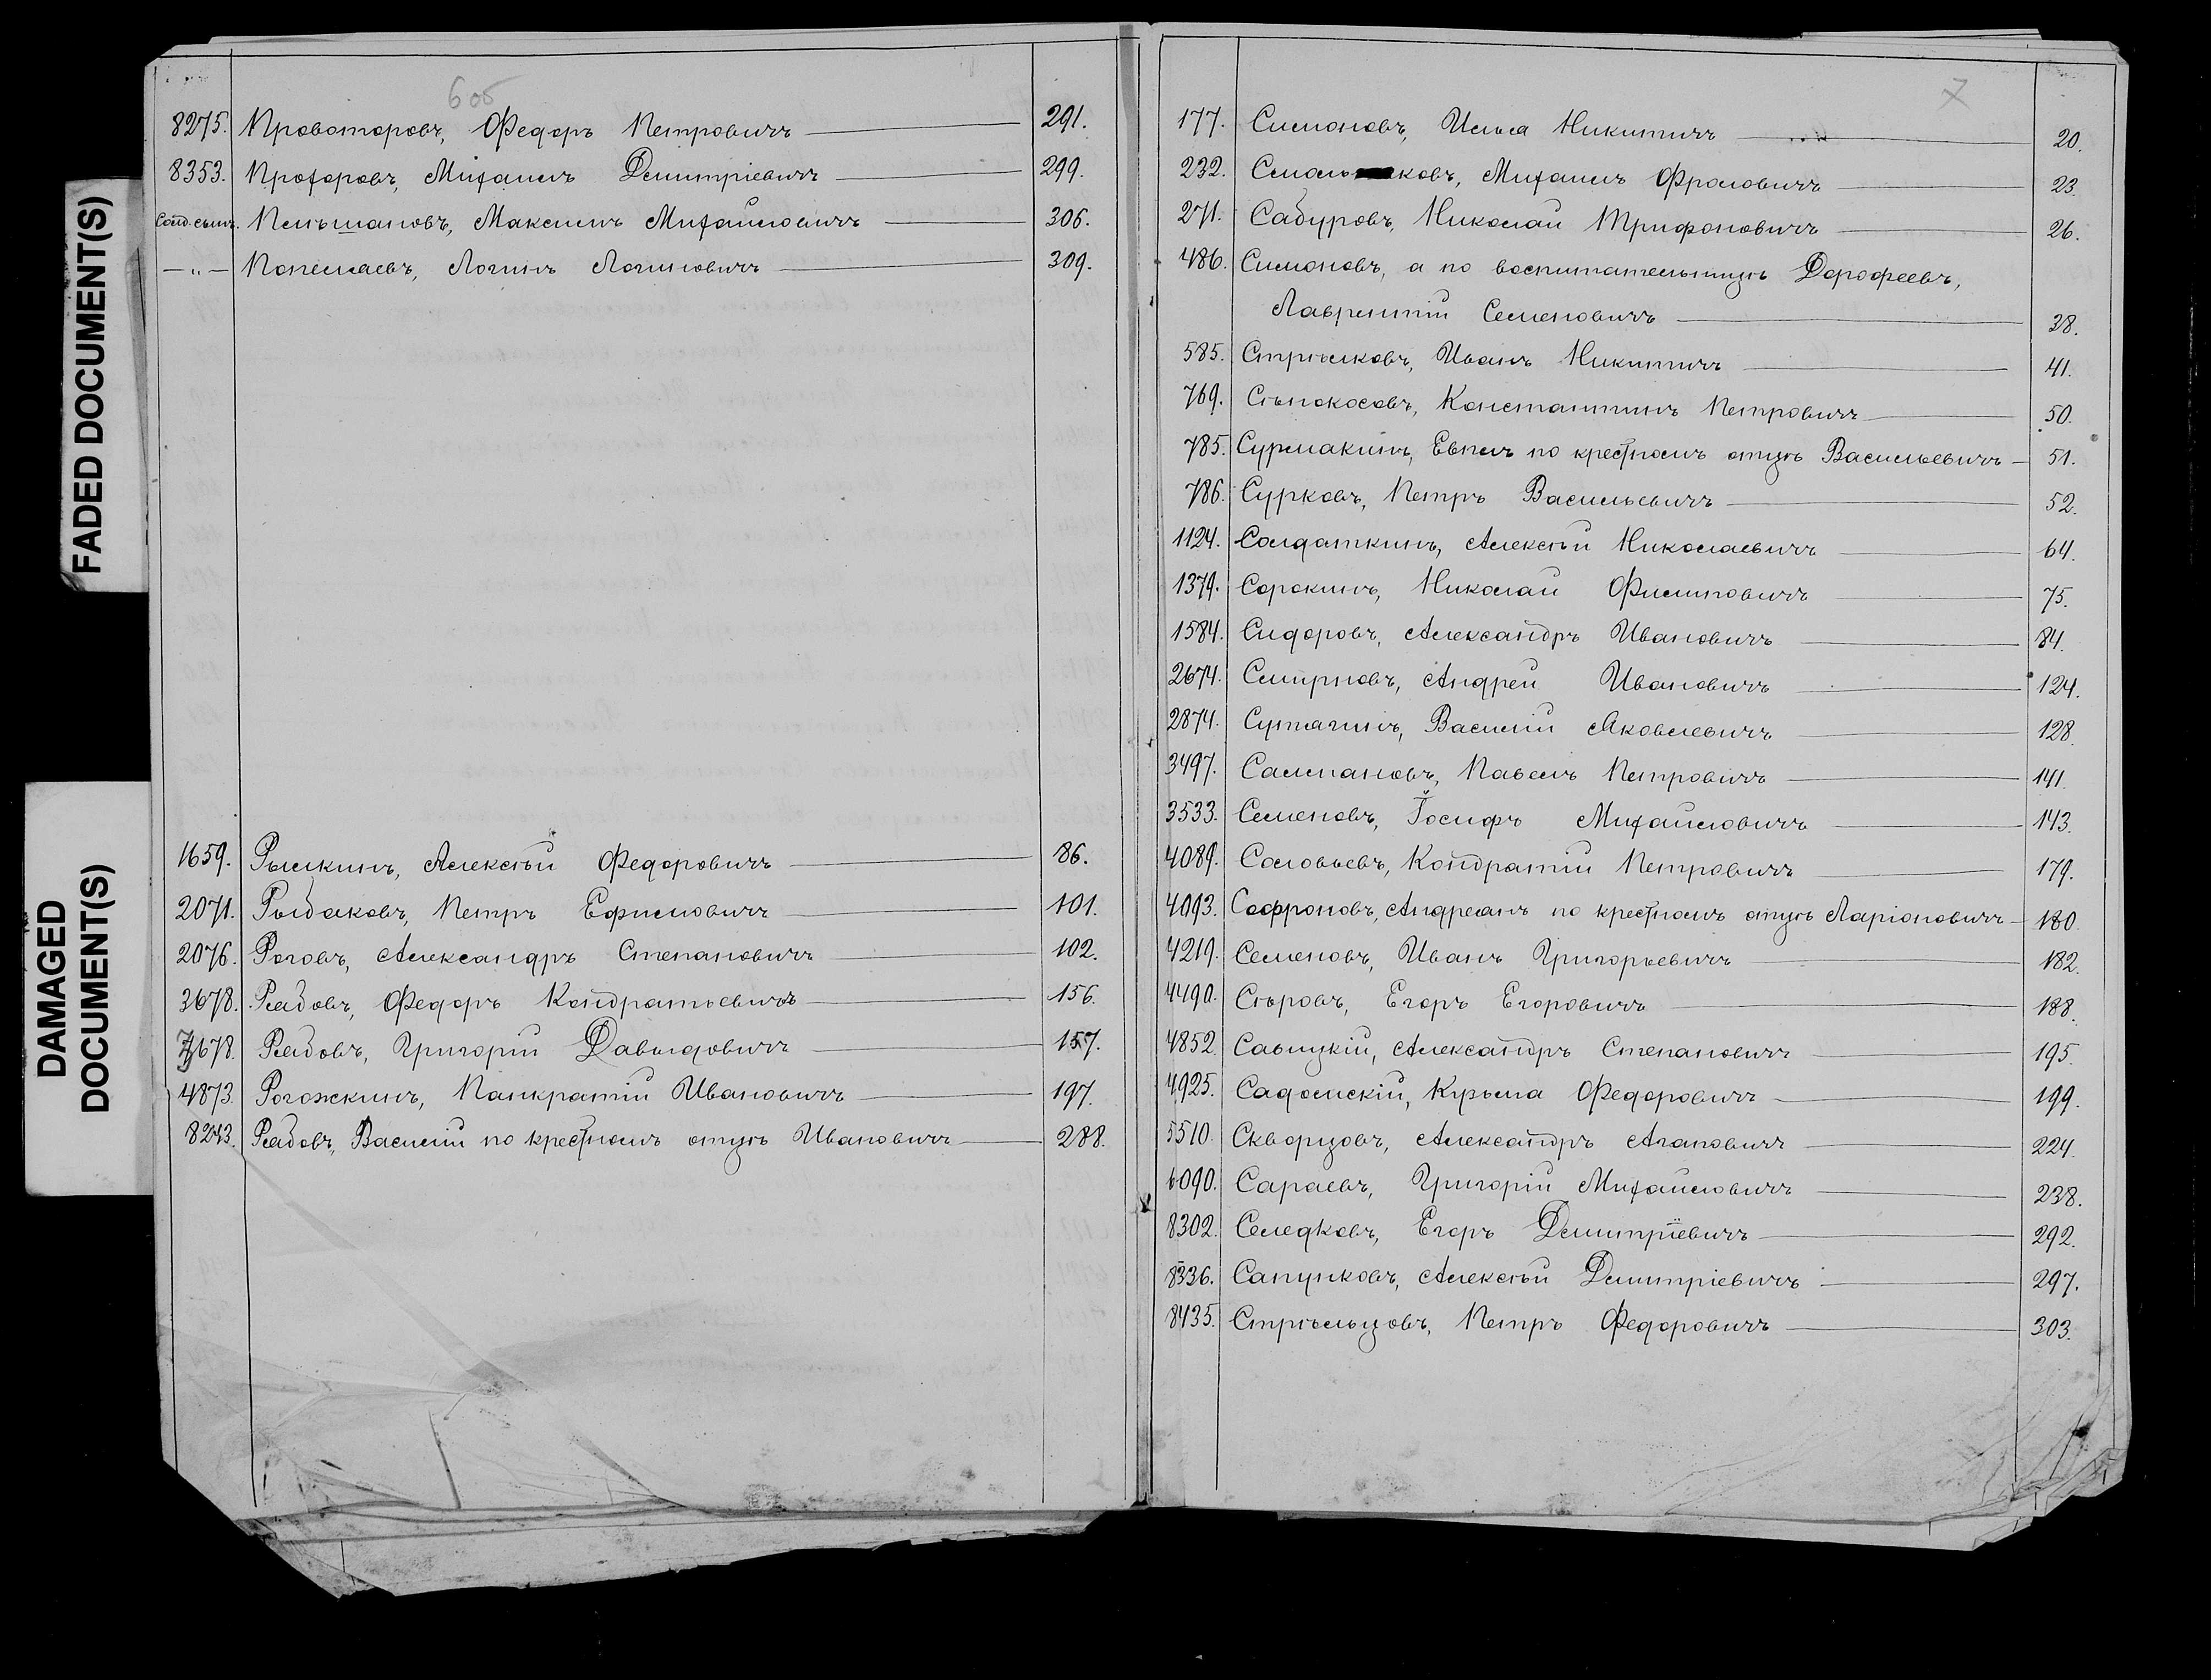 FADED DOCUMENT(S)
DAMAGED
DOCUMENT(S)
6 об
8275. Провоторовъ, Федоръ Петровичъ 291.
8353. Прохоровъ, Михаилъ Дмитріевичъ 299.
Солд.сынъ. Пеньшановъ, Максимъ Михайловичъ 306.
—„— Попелаевъ, Логинъ Логиновичъ 309.
1659. Рылкинъ, Алексѣй Федоровичъ 86.
2071. Рыбаковъ, Петръ Ефимовичъ 101.
2076. Роговъ, Александръ Степановичъ 102.
3678. Рябовъ, Федоръ Кондратьевичъ 156.
3678. Рябовъ, Григорій Давыдовичъ 157.
4873. Рогожкинъ, Панкратій Ивановичъ 197.
8243. Рябовъ, Василій по крестномъ отцѣ Ивановичъ 288.
7
177. Симоновъ, Илья Никитичъ 20.
232. Смоль ковъ, Михаилъ Фроловичъ 23
271. Сабуровъ, Николай Трифоновичъ 26.
486. Симоновъ, а по воспитательницѣ Дорофеевъ,
Лаврентій Семеновичъ 38.
585. Стрѣлковъ, Иванъ Никитичъ 41.
769. Сѣнокосовъ, Константинъ Петровичъ 50.
785. Сурмакинъ, Евпл по крестномъ отцѣ Васильевичъ 51.
786. Сурковъ, Петръ Васильевичъ 52.
1124. Солдаткинъ, Алексѣй Николаевичъ 64.
1379. Сорокинъ, Николай Филиповичъ 75.
1584. Сидоровъ, Александръ Ивановичъ 84.
2674. Смирновъ, Андрей Ивановичъ 124.
2874. Сутягинъ, Василій Яковлевичъ 128.
3497. Салмановъ, Павелъ Петровичъ 141.
3533. Семеновъ, Іосифъ Михайловичъ 143.
4089. Соловьевъ, Кондратій Петровичъ 179.
4093. Софроновъ, Андреянъ по крестномъ отцѣ Ларіоновичъ 180.
4219. Семеновъ, Иванъ Григорьевичъ 182.
4490. Сѣровъ, Егоръ Егоровичъ 188.
4852. Савицкій, Александръ Степановичъ 195.
4925. Садомскій, Кузьма Федоровичъ 199.
5510. Скворцовъ, Александръ Агаповичъ 224.
6090. Сараевъ, Григорій Михайловичъ 238.
8302. Селедковъ, Егоръ Дмитріевичъ 292.
8336. Сапунковъ, Алексѣй Дмитріевичъ 297.
8435. Стрѣльцовъ, Петръ Федоровичъ 303.